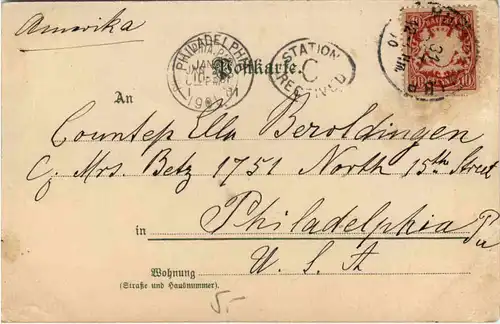 Amerika
PHILADELPHIA
JAN
1901
STATION
C
RECEIVED
Postkarte.
BAYERN
10
An
Countess Ella Beroldingen
c/o Mrs. Betz 1751 North 15th Street
in Philadelphia Pa
U. S. A
Wohnung
(Straße und Hausnummer).
5.-